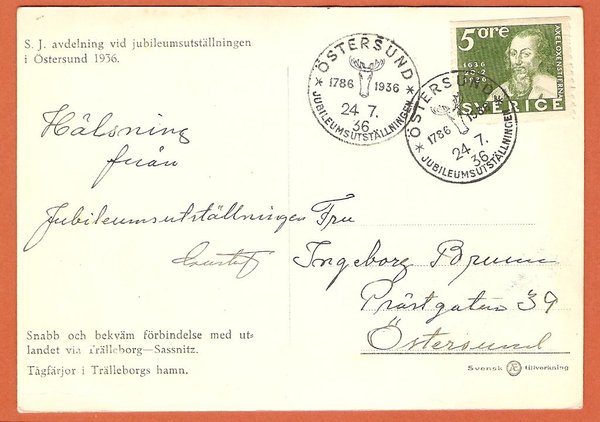 S. J. avdelning vid jubileumsutställningen
i Östersund 1936.
ÖSTERSUND
1786 1936
24 7.
36
JUBILEUMSUTSTÄLLNINGEN
5 öre
1636
20/2
1936
AXEL OXENSTIERNA
SVERIGE
ÖSTERSUND
1786 1936
24 7.
36
JUBILEUMSUTSTÄLLNINGEN
Hälsning
från
Jubileumsutställningen
Gustaf
Fru
Ingeborg Brunn
Prästgatan 39
Östersund
Snabb och bekväm förbindelse med ut-
landet via Trälleborg—Sassnitz.
Tågfärjor i Trälleborgs hamn.
Svensk tillverkning